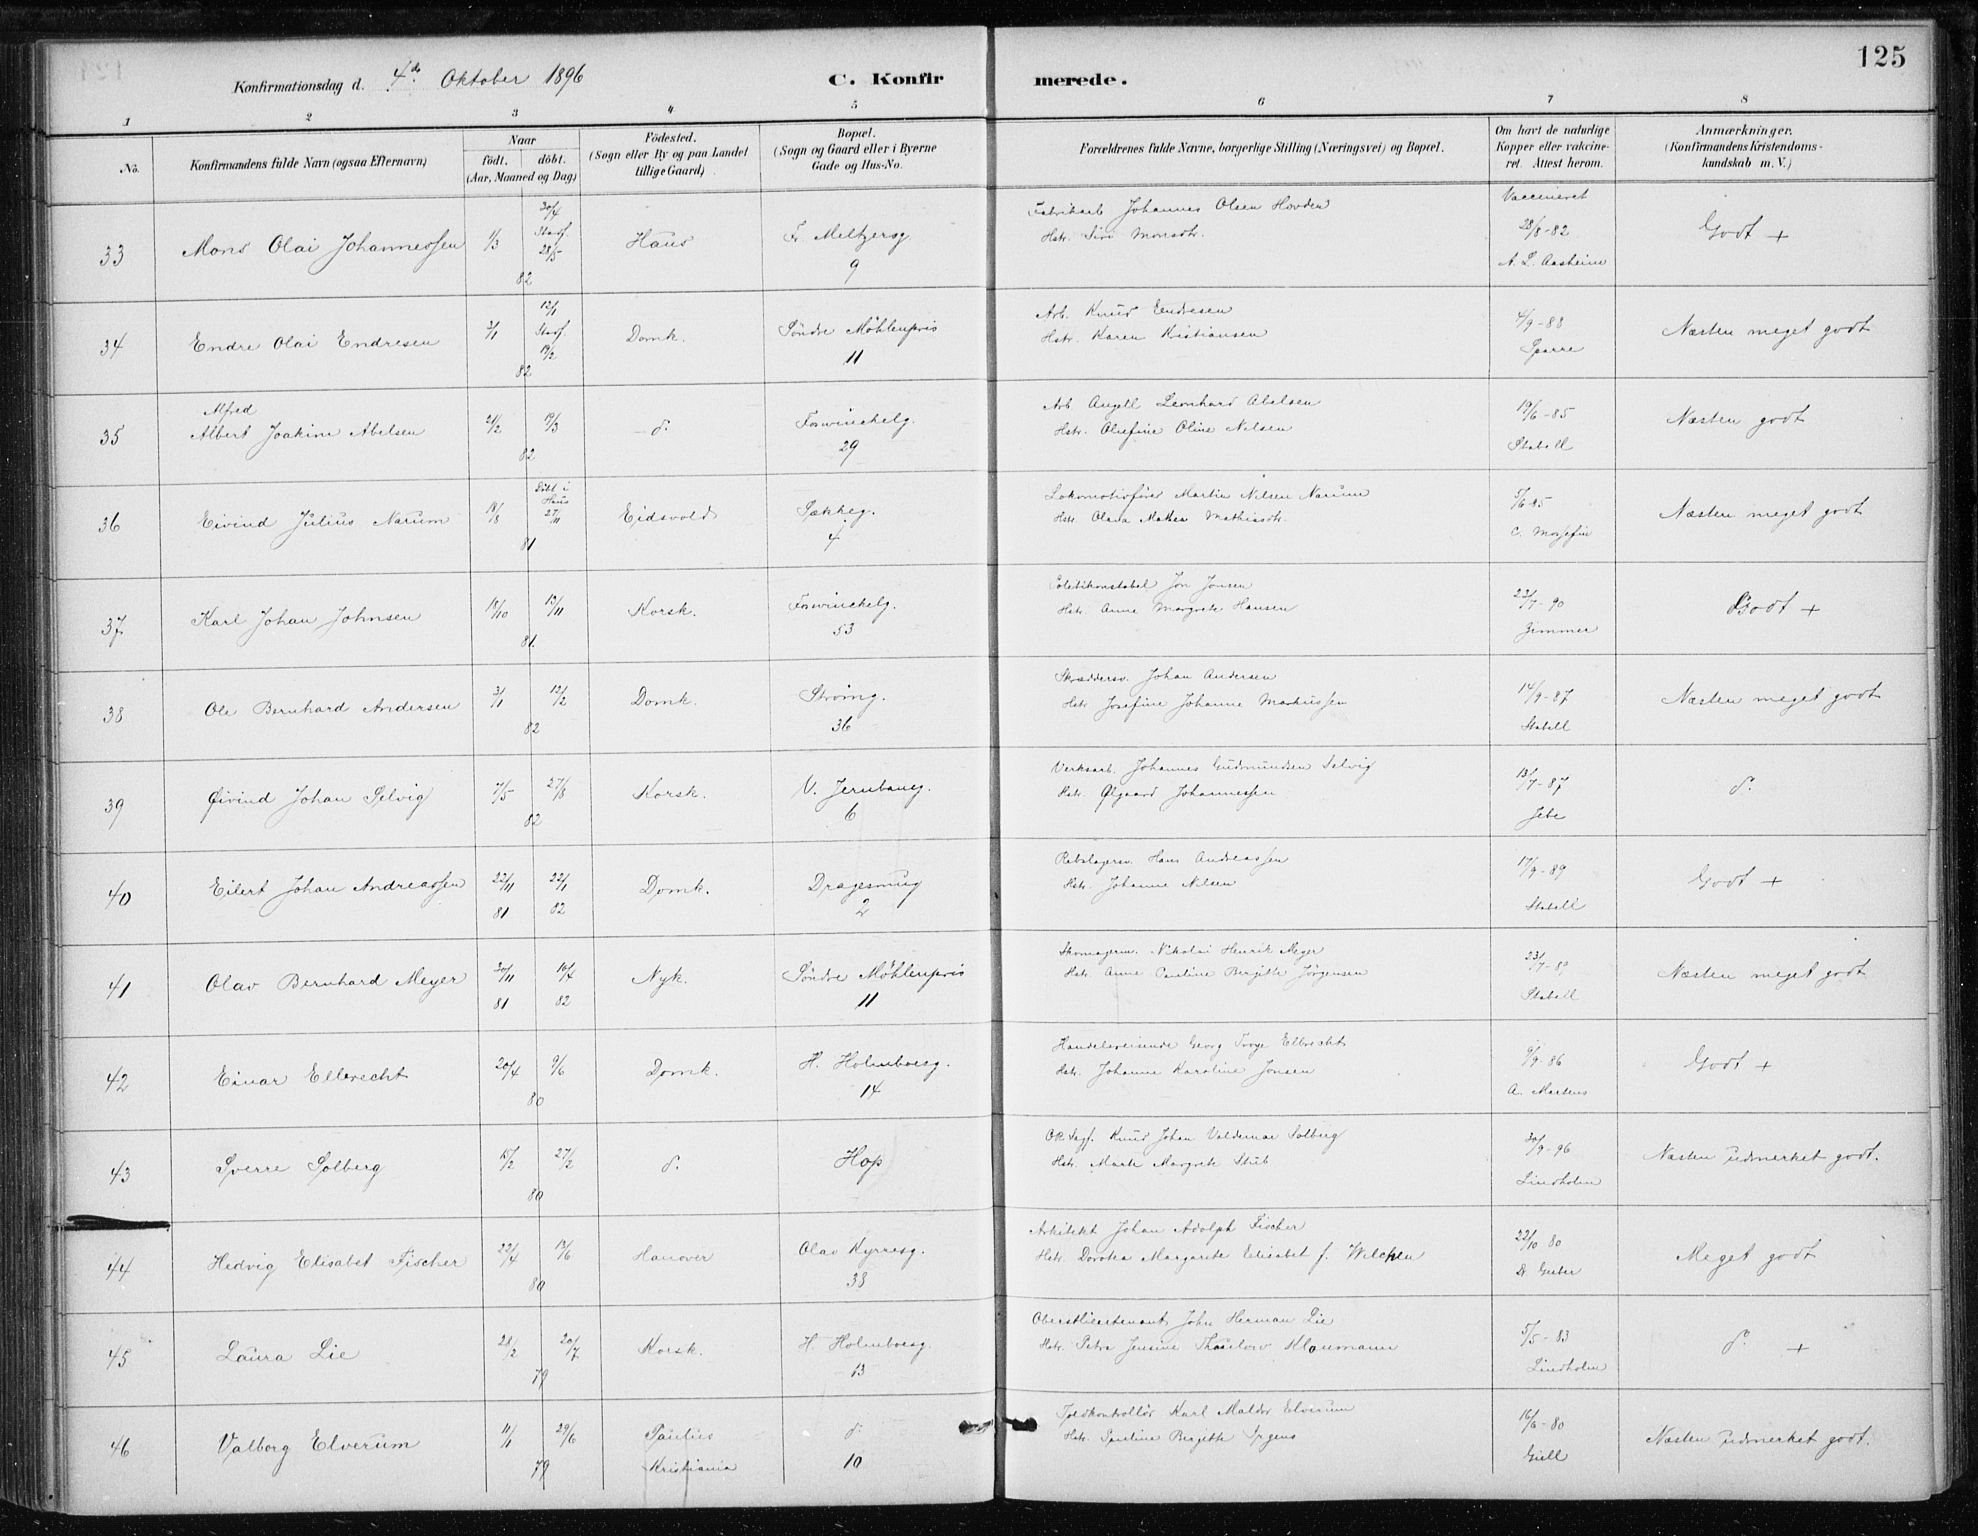 125
Konfirmationsdag d. 4de Oktober 1896
C. Konfir merede.
1 2 3 4 5 6 7 8
No. Konfirmandens fulde Navn (ogsaa Efternavn) Naar født. døbt. (Aar, Maaned og Dag) Fødested. (Sogn eller By og paa Landet tillige Gaard) Bopæl. (Sogn og Gaard eller i Byerne Gade og Hus-No. Forældrenes fulde Navne, borgerlige Stilling (Næringsvei) og Bopæl. Om havt de naturlige Kopper eller vakcineret. Attest herom. Anmærkninger. (Konfirmandens Kristendomskundskab m. V.)
33 Mons Olai Johannessen 1/3 30/4 Stadf. 28/5 82 Haus Fr. Meltzersg 9
Fabrikarb. Johannes Olsen Hovden
Hstr. Siri Monsdtr.
Vaccineret 28/8-82 A. L. Aasheim
Godt +
34 Endre Olai Endresen 3/1 12/1 Stadf. 19/2 82 Domk. Søndre Møhlenpris 11
Arb. Knud Endresen
Hstr. Karen Kristiansen
4/9-88 Sparre
Næsten meget godt
35 Alfred
Albert Joakim Abelsen 21/2 19/3 82 d. Forwinckelg. 29
Arb Angell Leonhard Abelsen
Hstr. Olufine Oline Nilsen
19/6-85 Stabell
Næsten godt
36 Eivind Julius Narum 18/8 Døbt i Haus 27/11 81 Eidsvold Sækkeg. 4
Lokomotivfører Martin Nilsen Narum
Hstr. Olava Mathea Mathiasdtr.
5/6-85
Næsten meget godt
37 Karl Johan Johnsen 18/10 13/11 81. Korsk. Forwinckelg. 53
Politikonstabel Jon Jonsen
Hstr. Anne Margrete Hansen
22/7-90 Zimmer
Godt +
38 Ole Bernhard Andersen 3/1 12/2 82 Domk. Strømg. 36
Skræddersv. Johan Andersen
Hstr. Josefine Johanne Markussen
14/9-87 Stabell
Næsten meget godt
39 Øivind Johan Selvig 7/5 27/8 82 Korsk. V. Jernbaneg. 6
Verksarb. Johannes Gudmundsen Selvig
Hstr. Ølgaard Johannessen
13/7-87 Jebe
d.
40 Eilert Johan Andreassen 22/11 81 22/1 82 Domk. Dragesmug 2
Rebslagersv. Hans Andreassen
Hstr. Johanne Nilsen
17/9-89 Stabell
Godt +
41 Olav Bernhard Meyer 30/11 81 16/4 82 Nyk. Søndre Møhlenpris 11
Skomagerm. Nikolai Henrik Meyer
Hstr. Anne Pauline Bergitte Jørgensen
Stabell
Næsten meget godt
42 Einar Ellbrecht 20/4 9/6 80 Domk. H. Holmboesg. 14
Handelsreisende Georg Troye Ellbrecht
Hstr. Johanne Karoline Jonsen
9/9-86 A. Martens
Godt +
43 Sverre Solberg 15/2 27/2 80 d. Hop
OR Sagf. Knud Johan Valdemar Solberg
Hstr. Marte Margrete Stub
30/9-96 Lindholm
Næsten udmerket godt.
44 Hedvig Elisabet Fischer 22/4 13/6 80 Hanover Olav Kyrresg. 38
Arkitekt Johan Adolph Fischer
Hstr. Dorotea Margarete Elisabet f. Wilcken
22/10 80
Meget godt
45 Laura Lie 28/2 20/7 79 Korsk. H. Holmboesg. 13
Oberstlieutenant John Herman Lie
Hstr. Petra Jensine Thaulow Klaumann
5/5-83 Lindholm
d. +
46 Valborg Elverum 11/1 29/6 79 Paulus Kristiania d. 10
Toldkontrollør Karl Maldor Elverum
Hstr. Pauline Bergitte Irgens
16/6-80
Næsten udmerket godt.